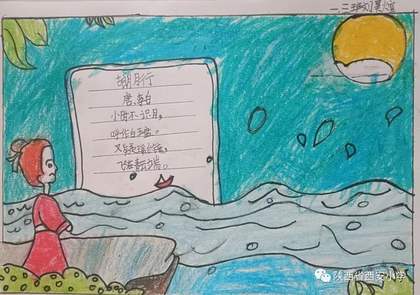 一.二班刘
朗月行
唐.李白
小时不识月,
呼作白玉盘。
又疑瑶台镜,
飞在青云端。
陕西省西安小学